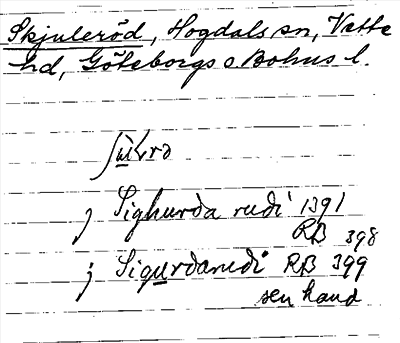 Skjuleröd, Hogdals sn, Vette
hd, Göteborgs o Bohus l.
j Sighurda rudi 1391
RB 398
j Sigurdarudi RB 399
sen hand